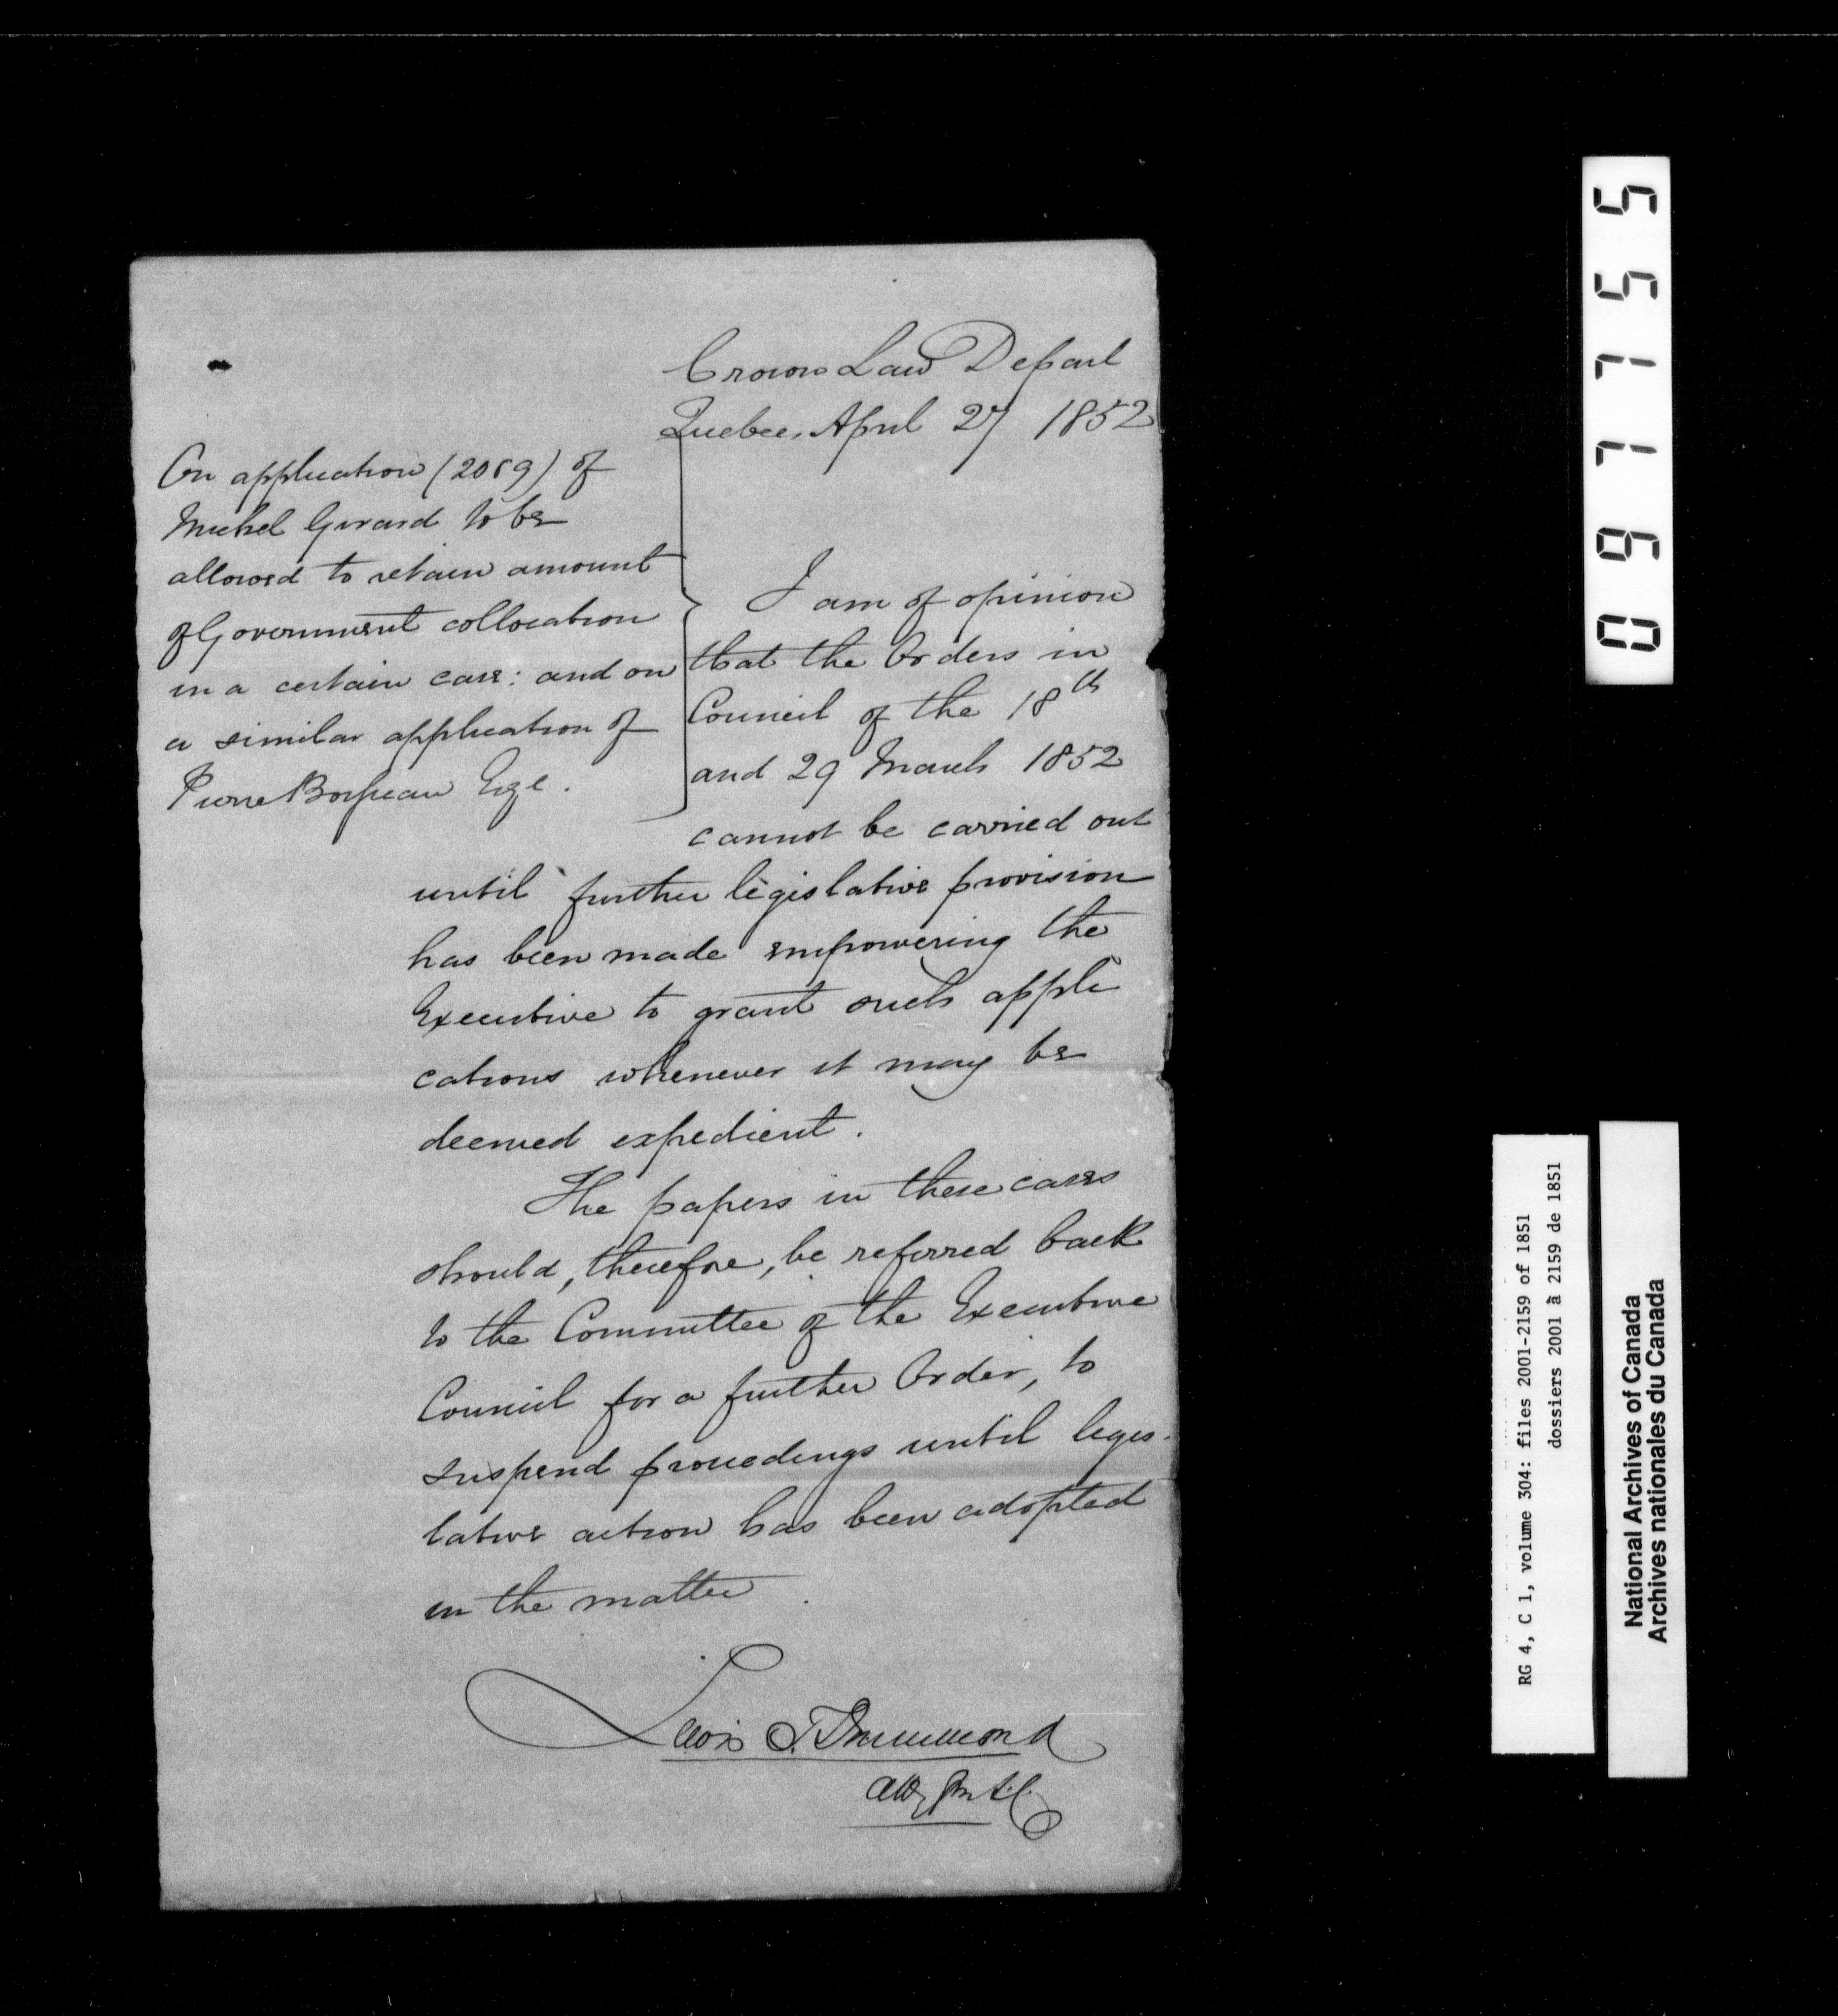 Crown Law Depart
Quebec, April 27 1852
On application (2059) of
Michel Girard to be
allowed to retain amount
of Government collocation
in a certain case: and on
a similar application of
Pierre Esqe.
I am of opinion
that the Orders in
Council of the 18th
and 29 March 1852
cannot be carried out
until further legislative provision
has been made empowering the
Executive to grant such appli
cations whenever it may be
deemed expedient.
The papers in these cases
should, therefore, be referred back
to the Committee of the Executive
Council for a further Order, to
suspend proceedings until legis-
lative action has been adopted
in the matter.
Lewis T. Drummond
Atty Gen L.C.
097755
RG 4, C 1, volume 304: files 2001-2159 of 1851
dossiers 2001 à 2159 de 1851
National Archives of Canada
Archives nationales du Canada